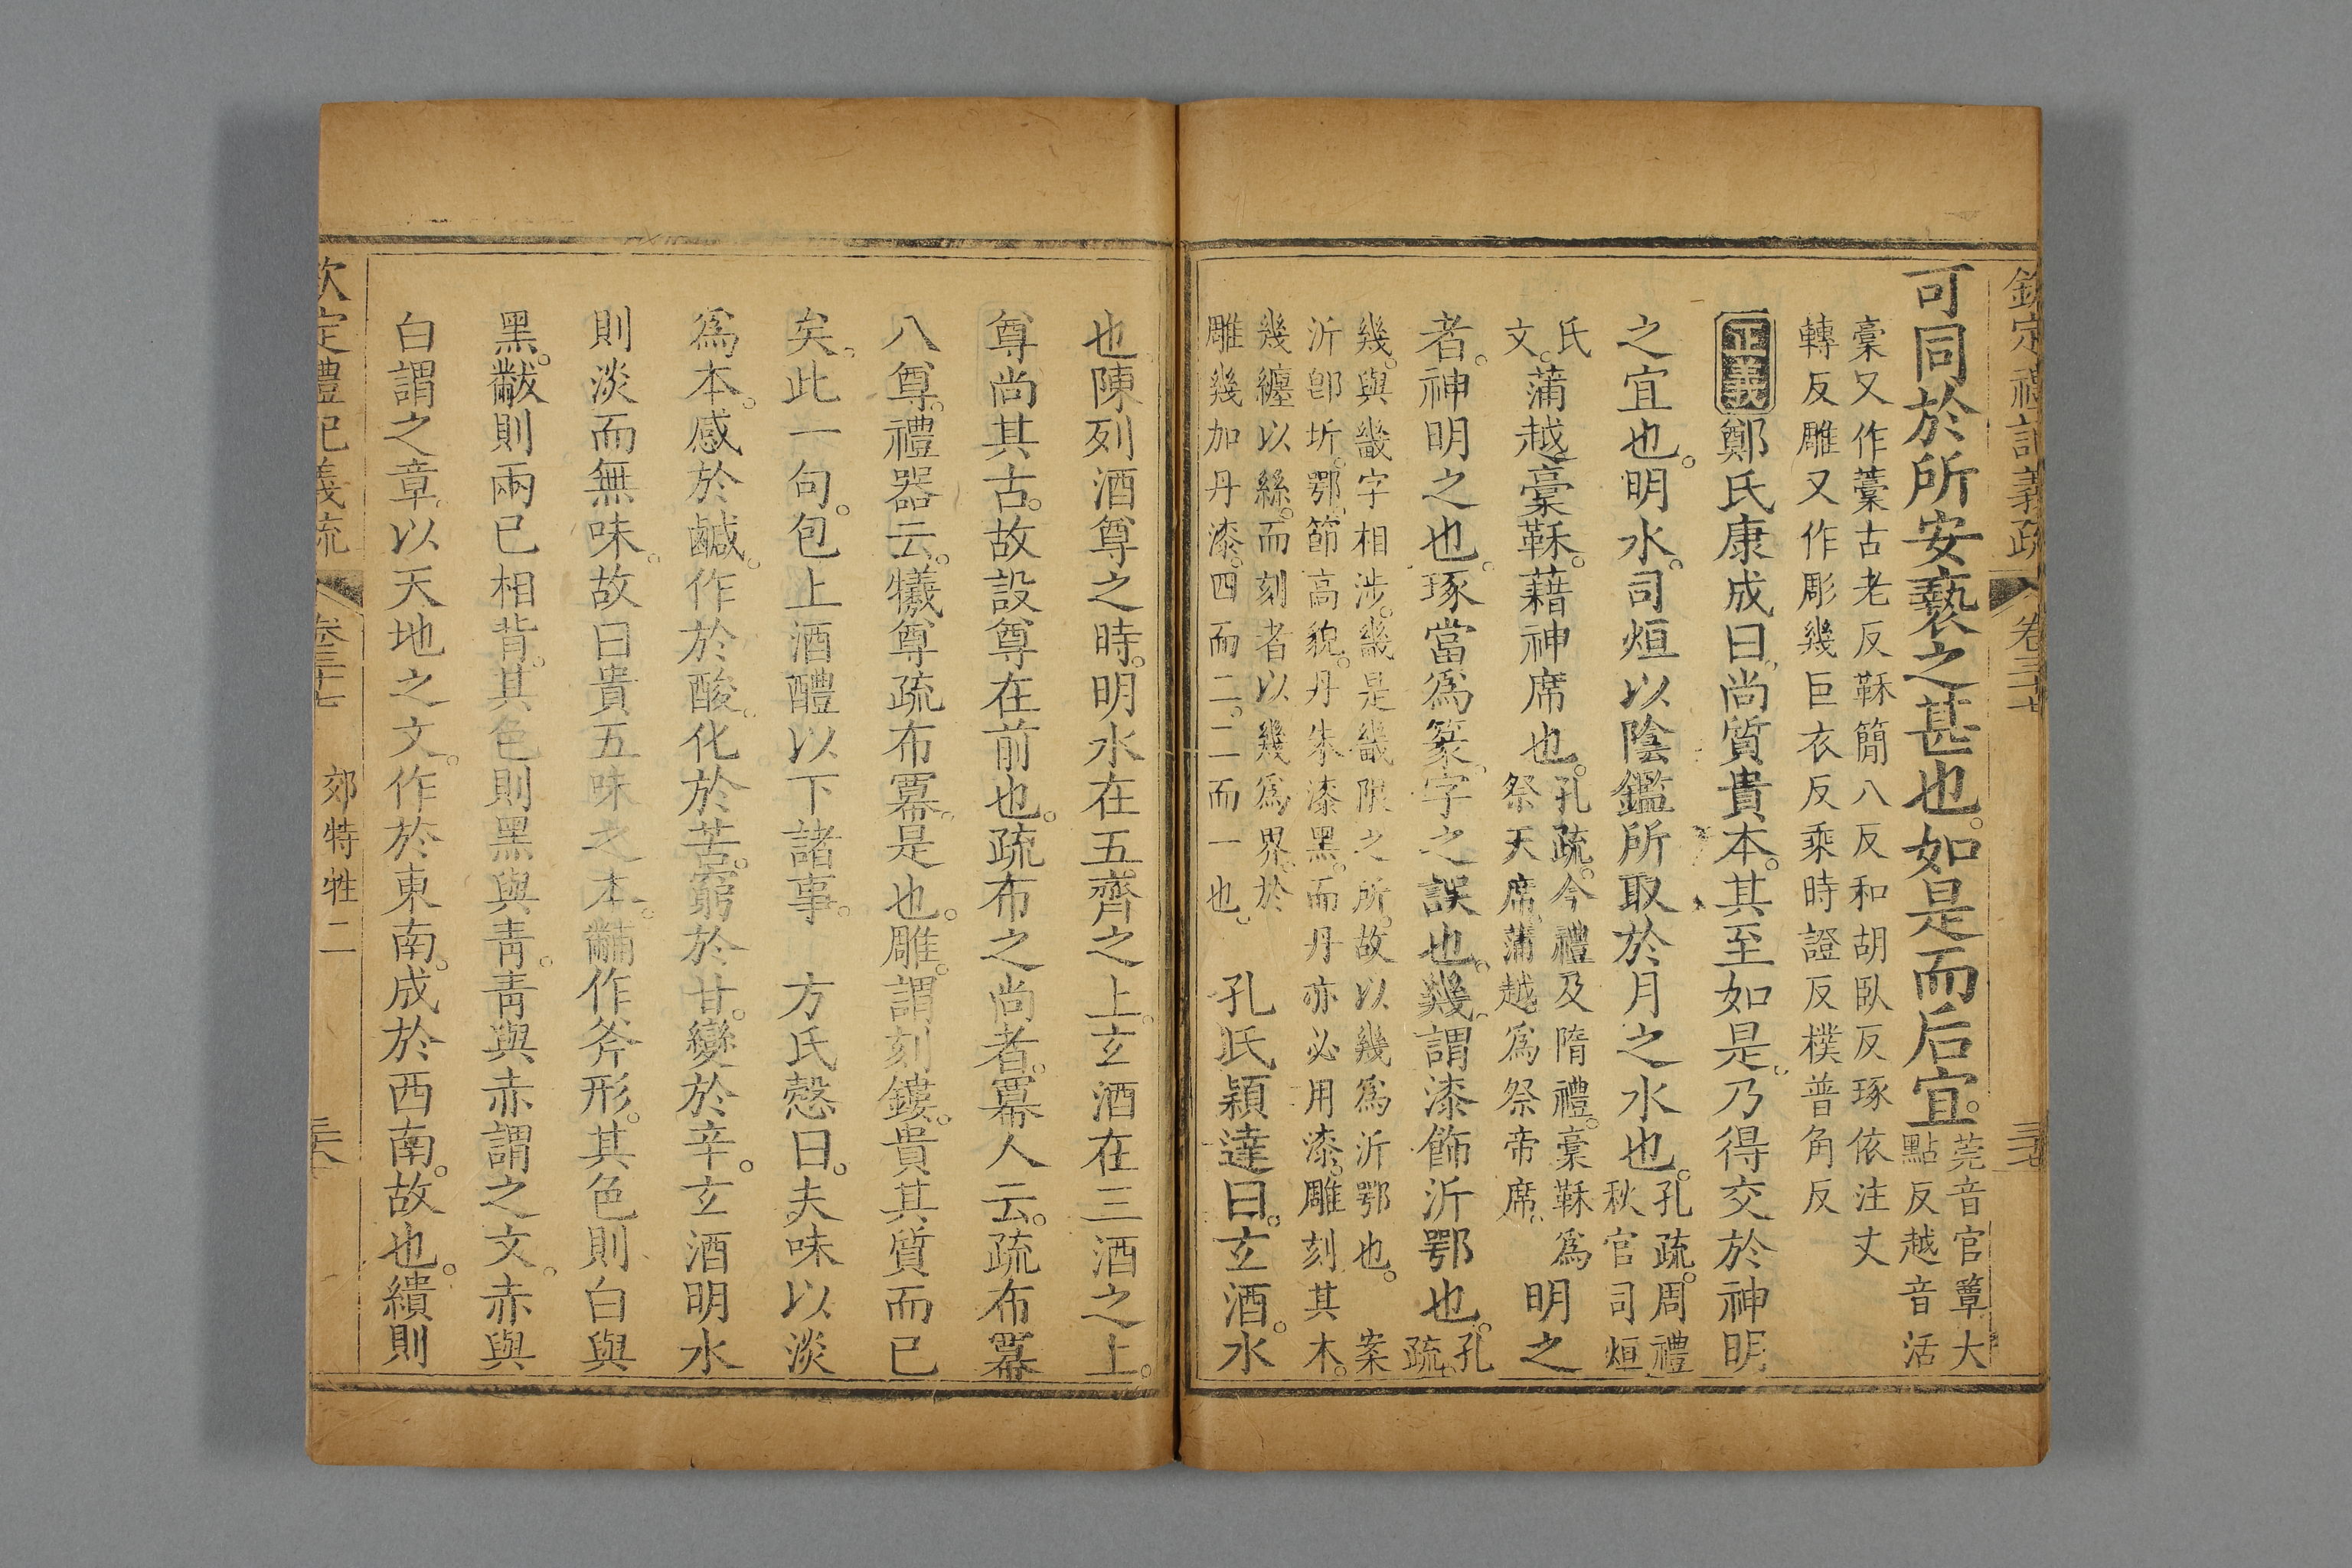 欽定禮記義疏 卷三十七
可同於所安褻之甚也。如是而后宜。莞音官簟大
點反越音活
稾又作藁古老反鞂簡八反和胡臥反琢依注丈
轉反雕又作彫幾巨衣反乘時證反樸普角反
正義鄭氏康成曰、尚質貴本。其至如是、乃得交於神明
之宜也。明水。司烜以陰鑑所取於月之水也。孔疏。周禮
秋官司烜
氏
文。蒲越、稾鞂。藉神席也。孔疏。今禮及隋禮。稾鞂爲
祭天席、蒲越爲祭帝席。 明之
者。神明之也。琢當爲篆、字之誤也。幾、謂漆飾沂鄂也。孔
疏。
幾。與畿字相涉。畿是畿限之所。故以幾爲沂鄂也。 案
沂卽圻。鄂節高貌。丹朱漆黑。而丹亦必用漆。雕刻其木。
幾纏以絲。而刻者以幾爲界。於
雕幾加丹漆。四而二。二而一也。 孔氏穎達曰。玄酒。水
也。陳列酒尊之時。明水在五齊之上。玄酒在三酒之上。
尊尚其古。故設尊在前也。疏布之尚者。冪人云。疏布冪
八尊。禮器云。犧尊疏布冪。是也。雕。謂刻鏤。貴其質而已
矣。此一句。包上酒醴以下諸事。 方氏慤曰。夫味以淡
爲本。感於鹹。作於酸。化於苦。窮於甘。變於辛。玄酒明水
則淡而無味。故曰貴五味之本。黼作斧形。其色則白與
黑。黻則兩已相背。其色則黑與青。青與赤謂之文。赤與
白謂之章。以天地之文。作於東南。成於西南。故也。繢則
欽定禮記義疏 卷三十七 郊特牲二